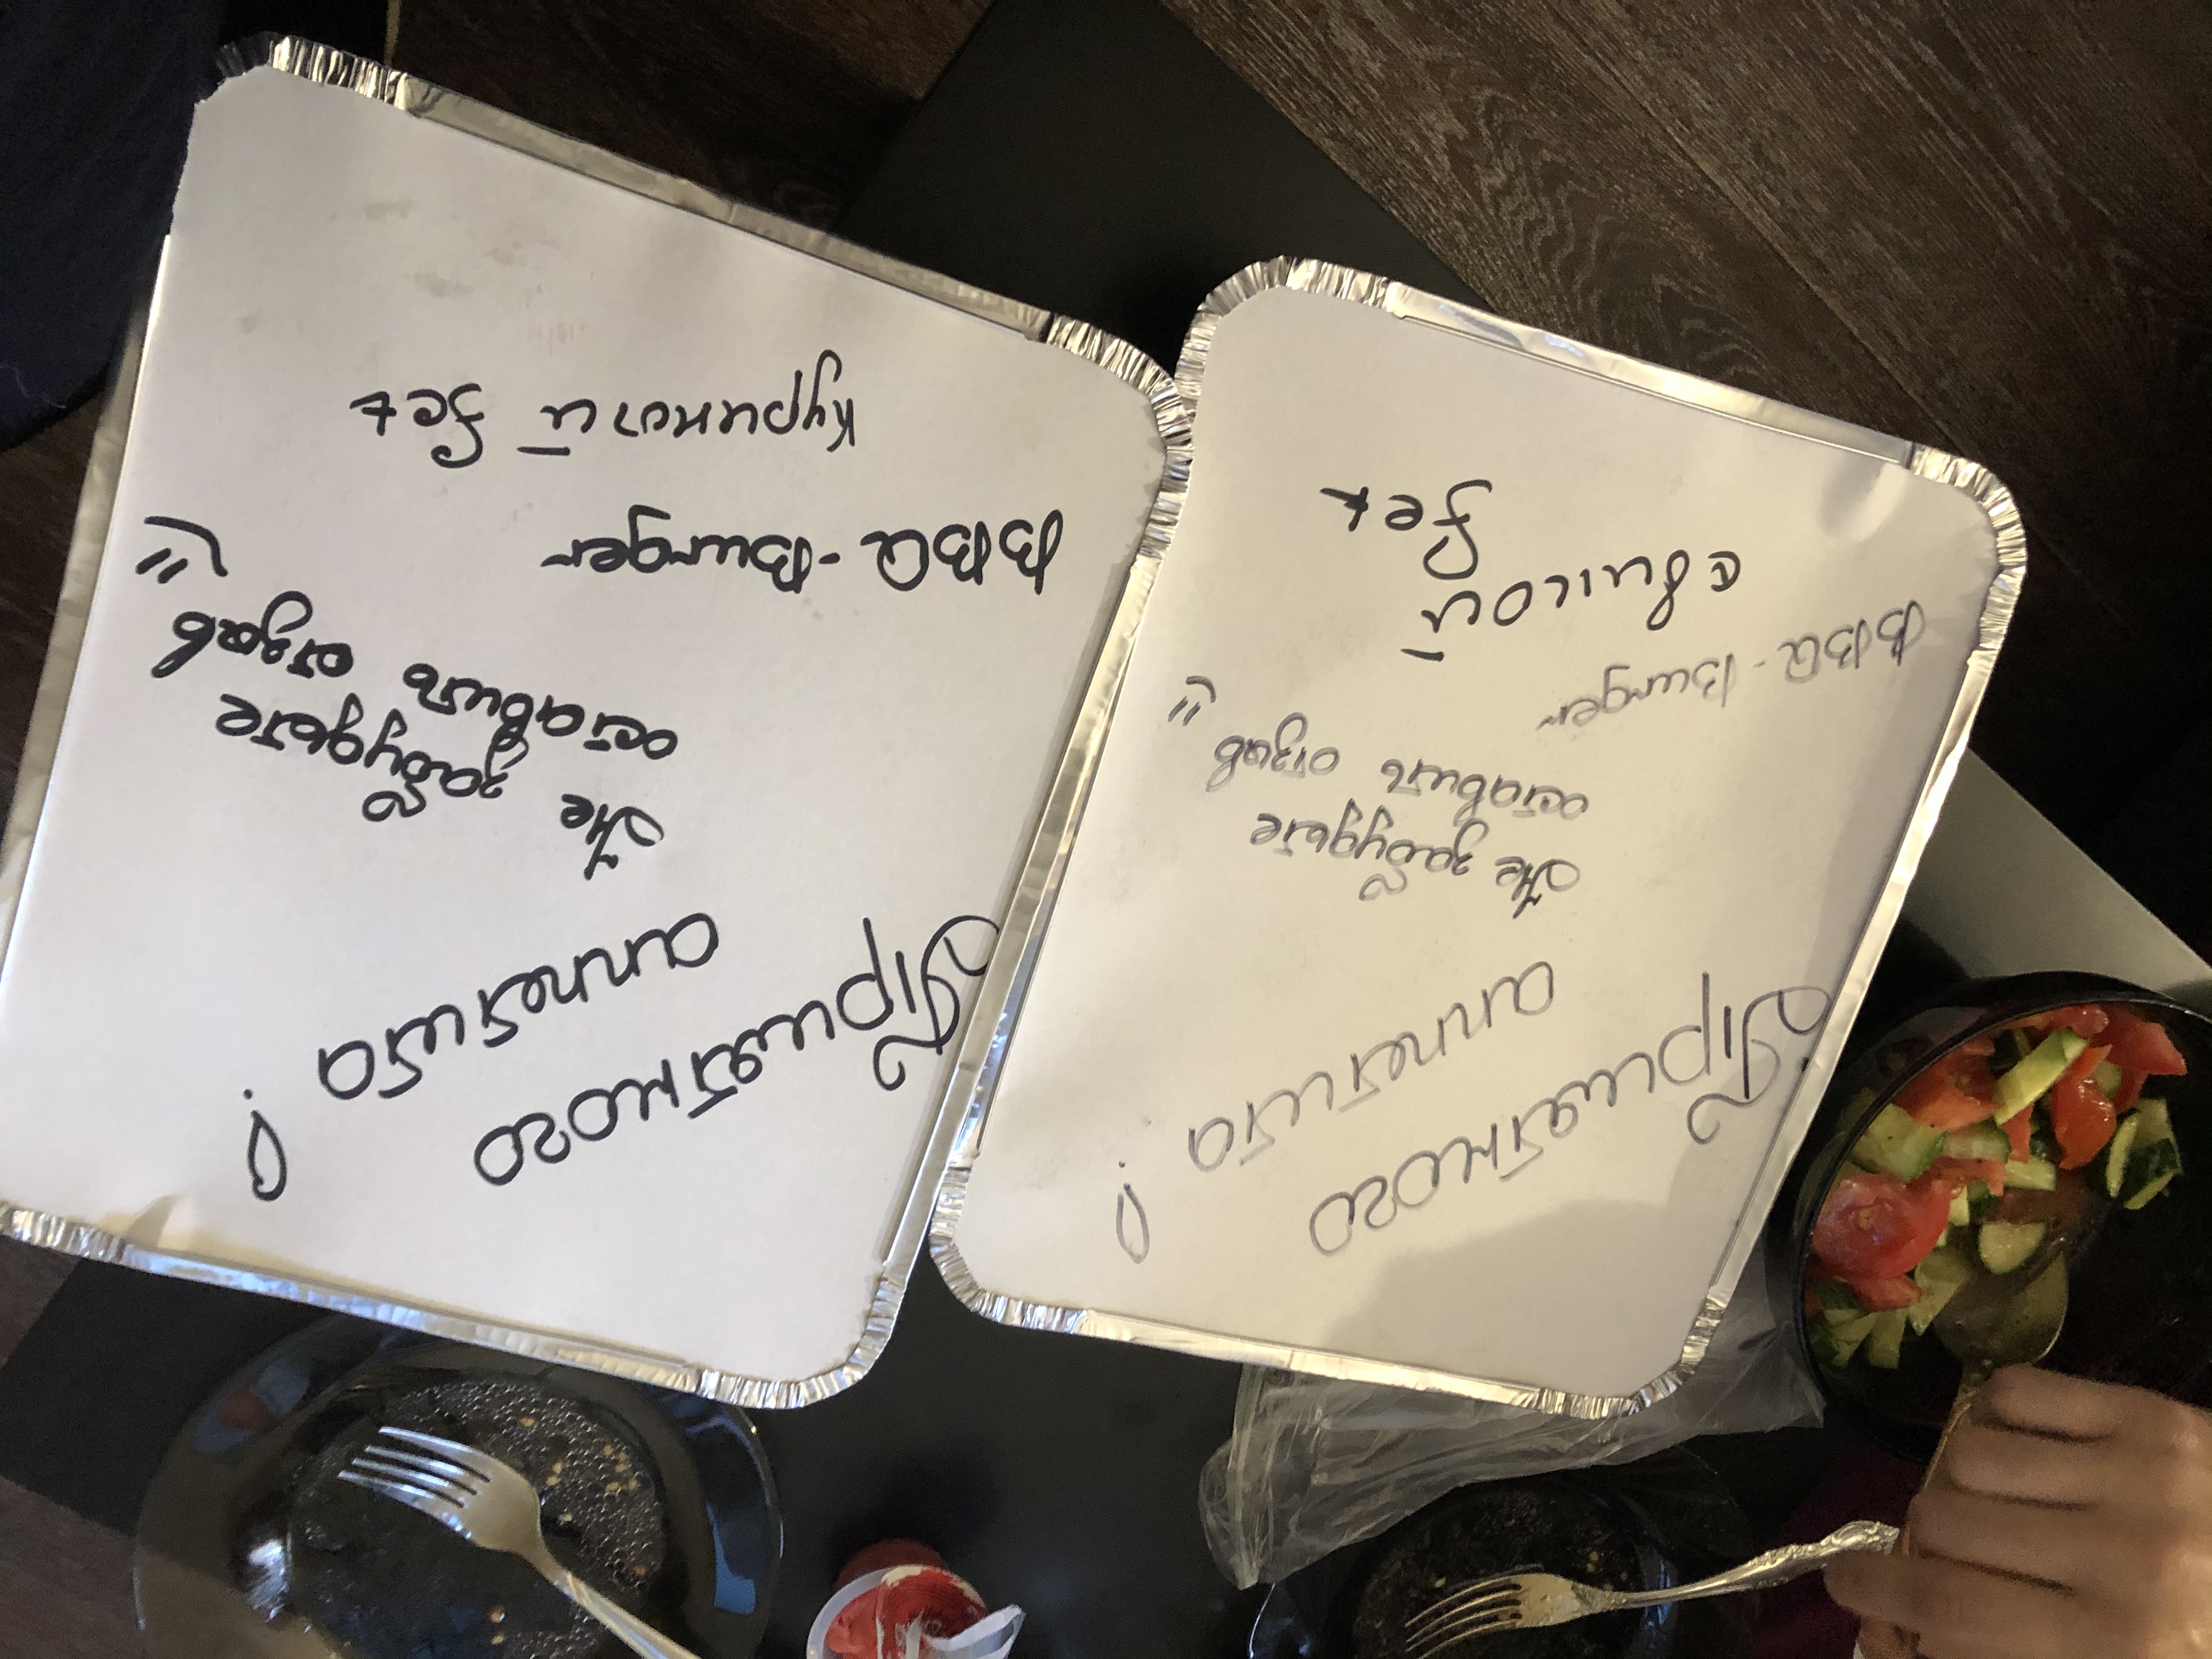 Приятного
аппетита !
Не забудьте
оставить отзыв
=)
BBQ-Burger
свиной
сет
Приятного
аппетита !
Не забудьте
оставить отзыв
=)
BBQ-Burger
Куриный сет